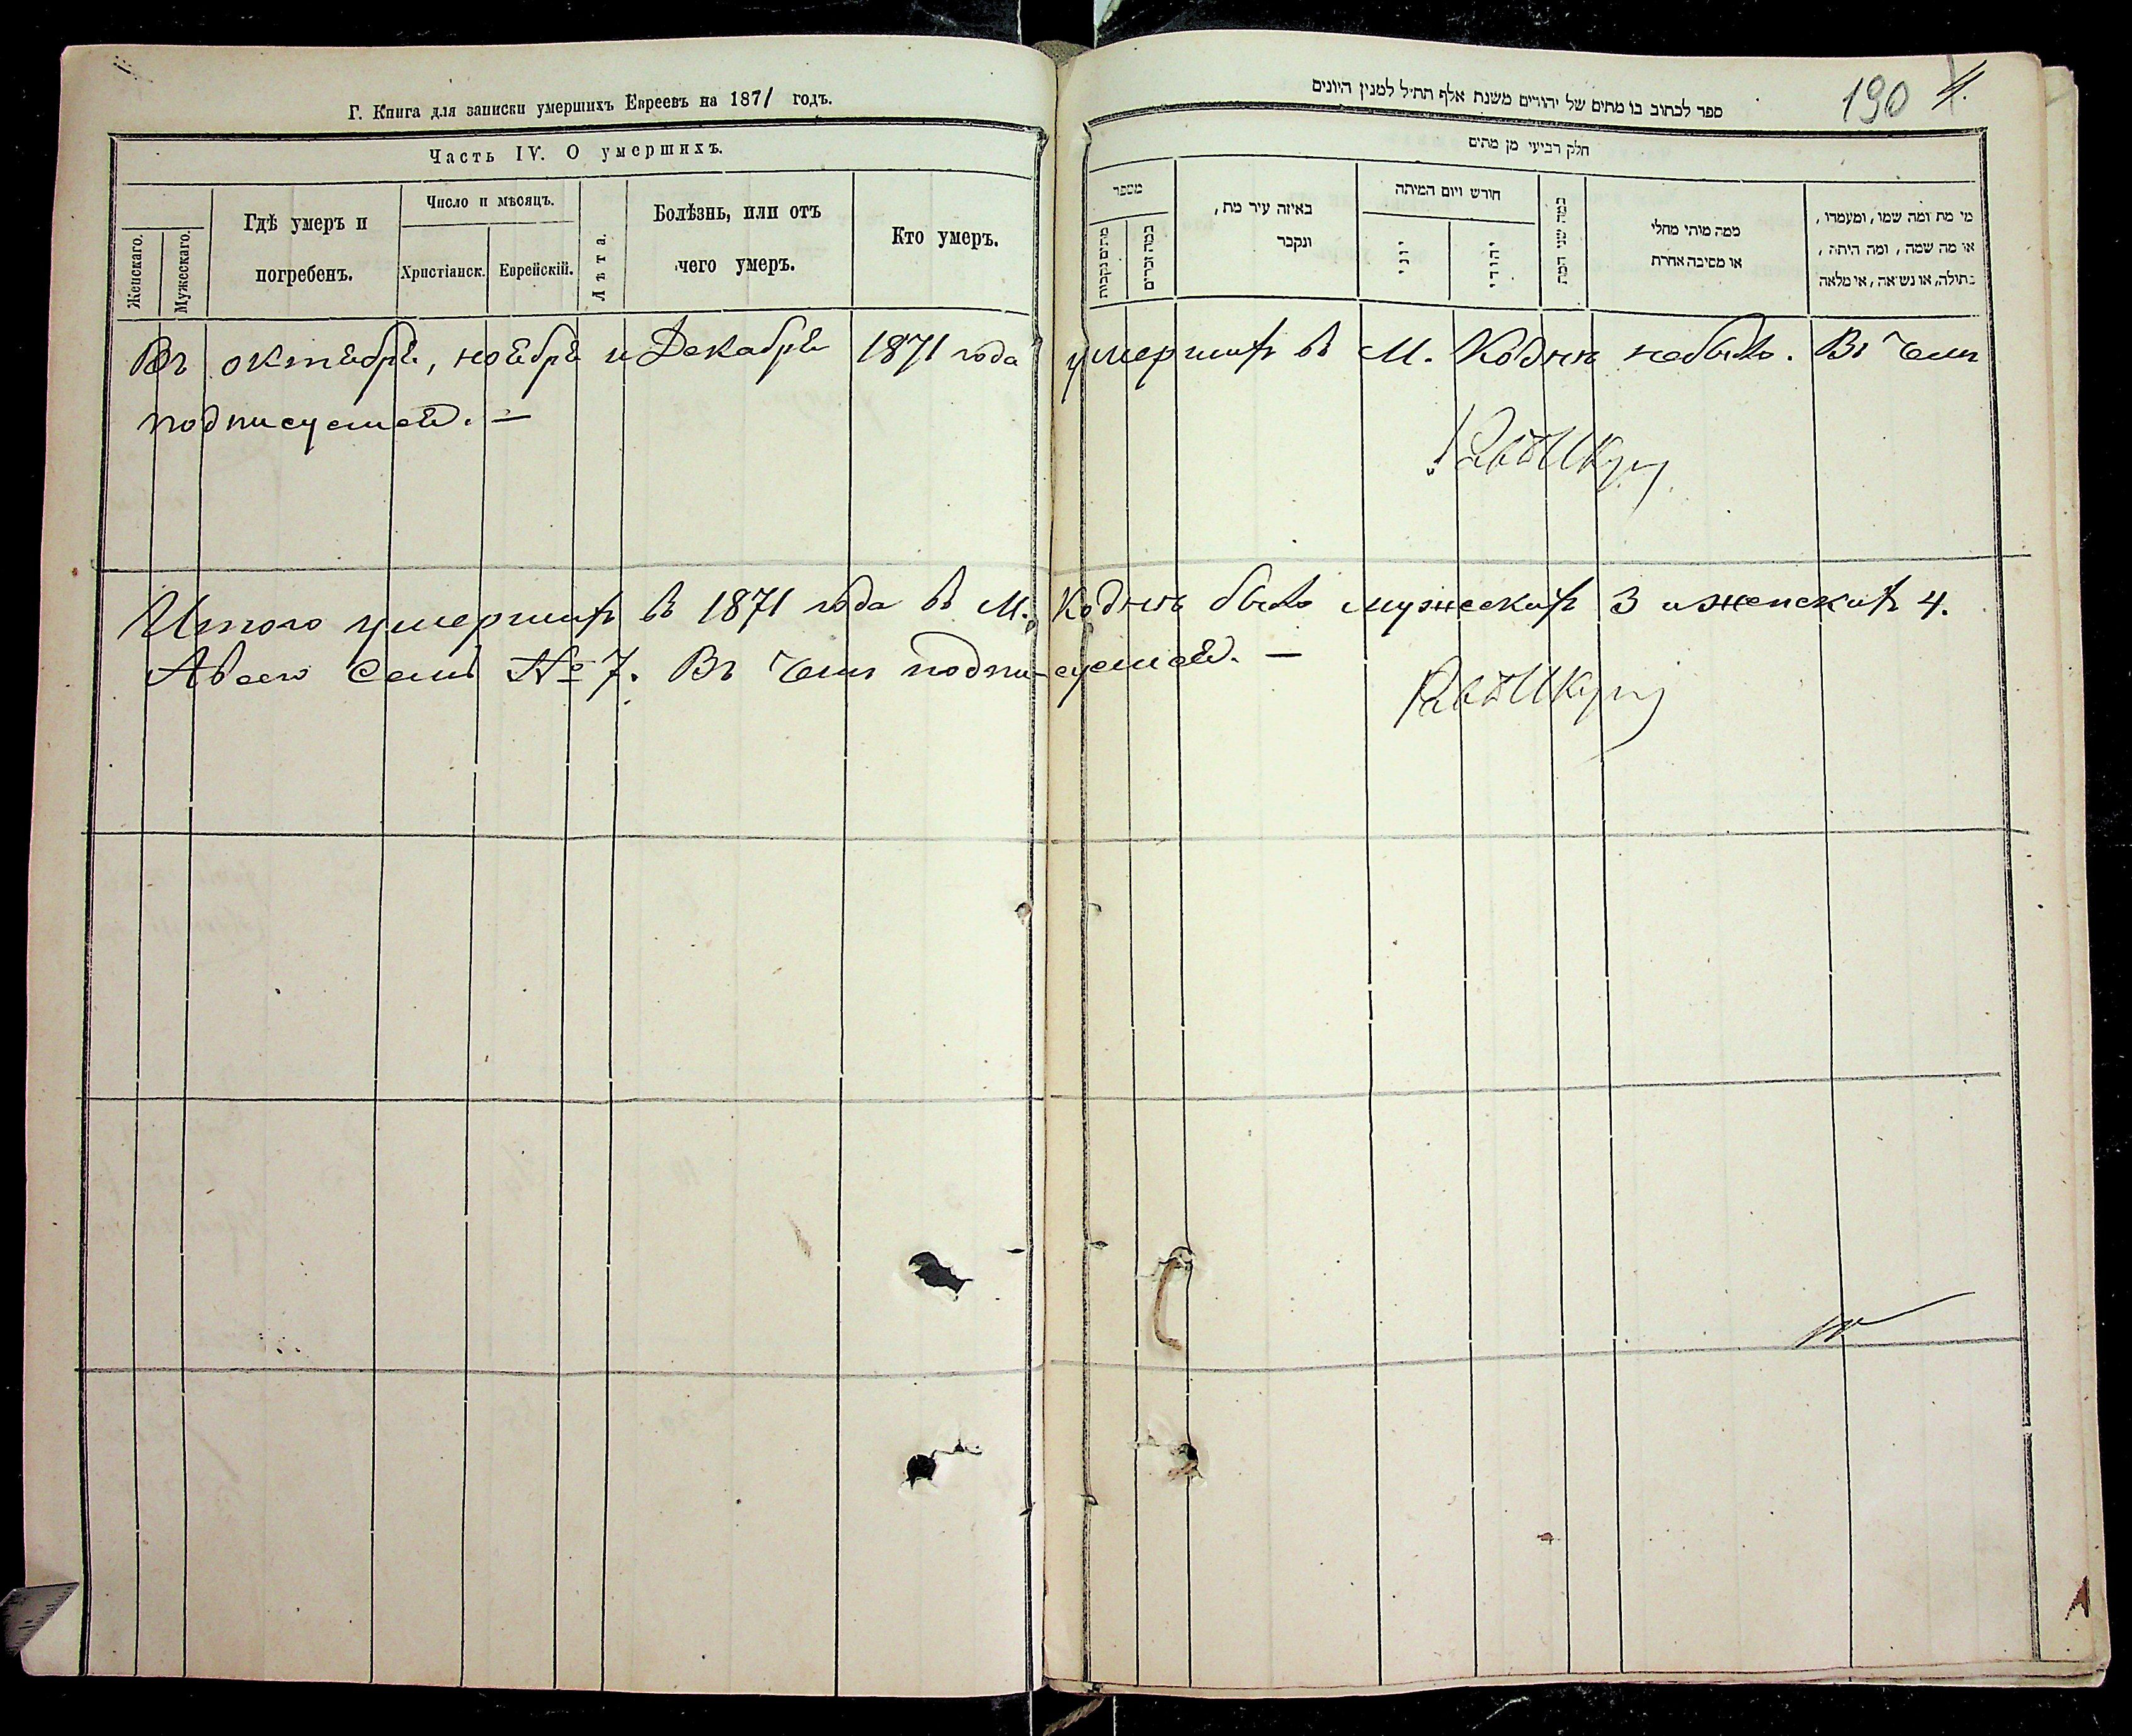 Г. Книга для записки умершихъ Евреевъ на 1871 годъ.
Часть IV. О умершихъ.
Женскаго.
Мужескаго.
Гдѣ умеръ и
погребенъ.
Число и мѣсяцъ.
Христіанск.
Еврейскій.
Лѣта.
Болѣзнь, или отъ
чего умеръ.
Кто умеръ.
190
4.
ספר לכתוב בו מתים של יהודים משנת אלף תת״ל למנין היונים
חלק רביעי מן מתים
מספר
מתים נקבות
כמה זכרים
באיזה עיר מת,
ונקבר
חודש ויום המיתה
יוני
יהודי
כמה שני המת
ממה מותי מחלי
או מסיבה אחרת
מי מת ומה שמו, ומעמדו,
או מה שמה, ומה היתה,
בתולה, או נשואה, או מלאה
Въ октябрѣ, ноябрѣ и Декабрѣ 1871 года умершихъ въ М. Коднѣ небыло. Въ чемъ
подписуемся. —
Итого умершихъ въ 1871 года въ М. Коднѣ было мужескихъ 3 и женскихъ 4.
А всего семь № 7. Въ чемъ подписуемся. —